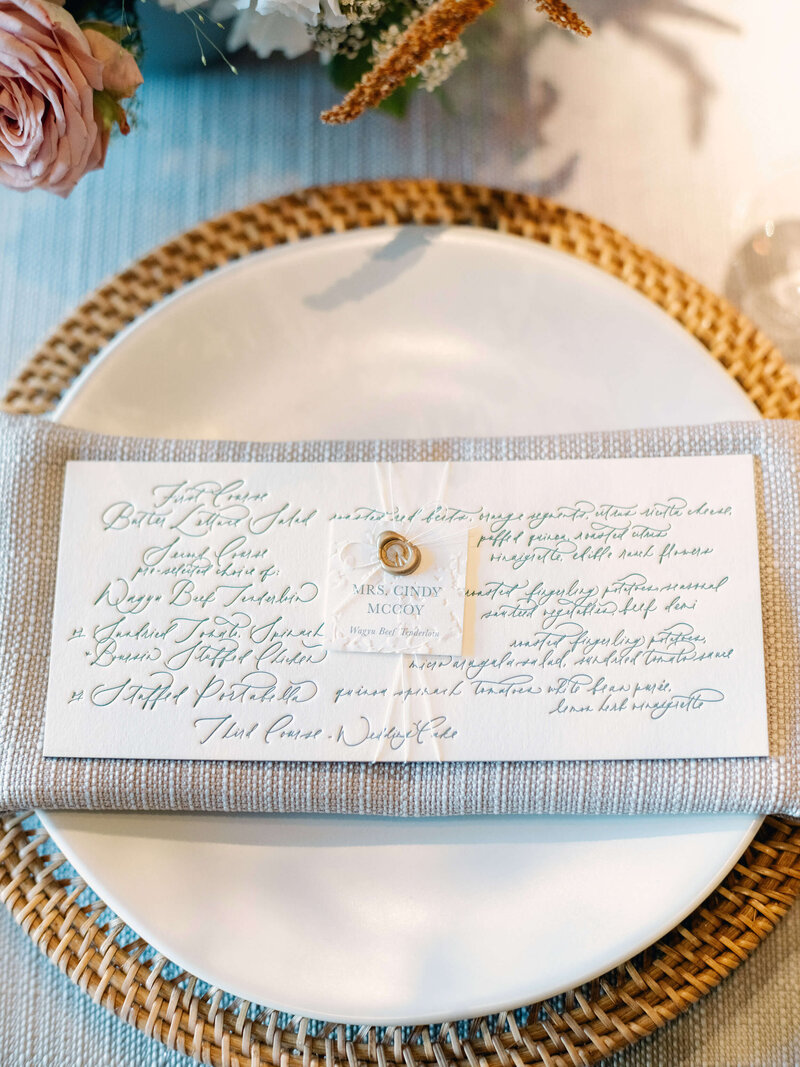 First Course
Butter Lettuce Salad roasted red beets, orange segments, citrus ricotta cheese,
puffed quinoa, roasted citrus
vinaigrette, edible ranch flowers
Second Course
pre-selected choice of:
Wagyu Beef Tenderloin roasted fingerling potatoes, seasonal
sautéed vegetables, beef demi
Sundried Tomato, Spinach roasted fingerling potatoes,
Boursin Stuffed Chicken micro arugula salad, sundried tomato sauce
Stuffed Portabella quinoa spinach tomatoes white bean purée,
lemon herb vinaigrette
Third Course - Wedding Cake
MRS. CINDY
MCCOY
Wagyu Beef Tenderloin